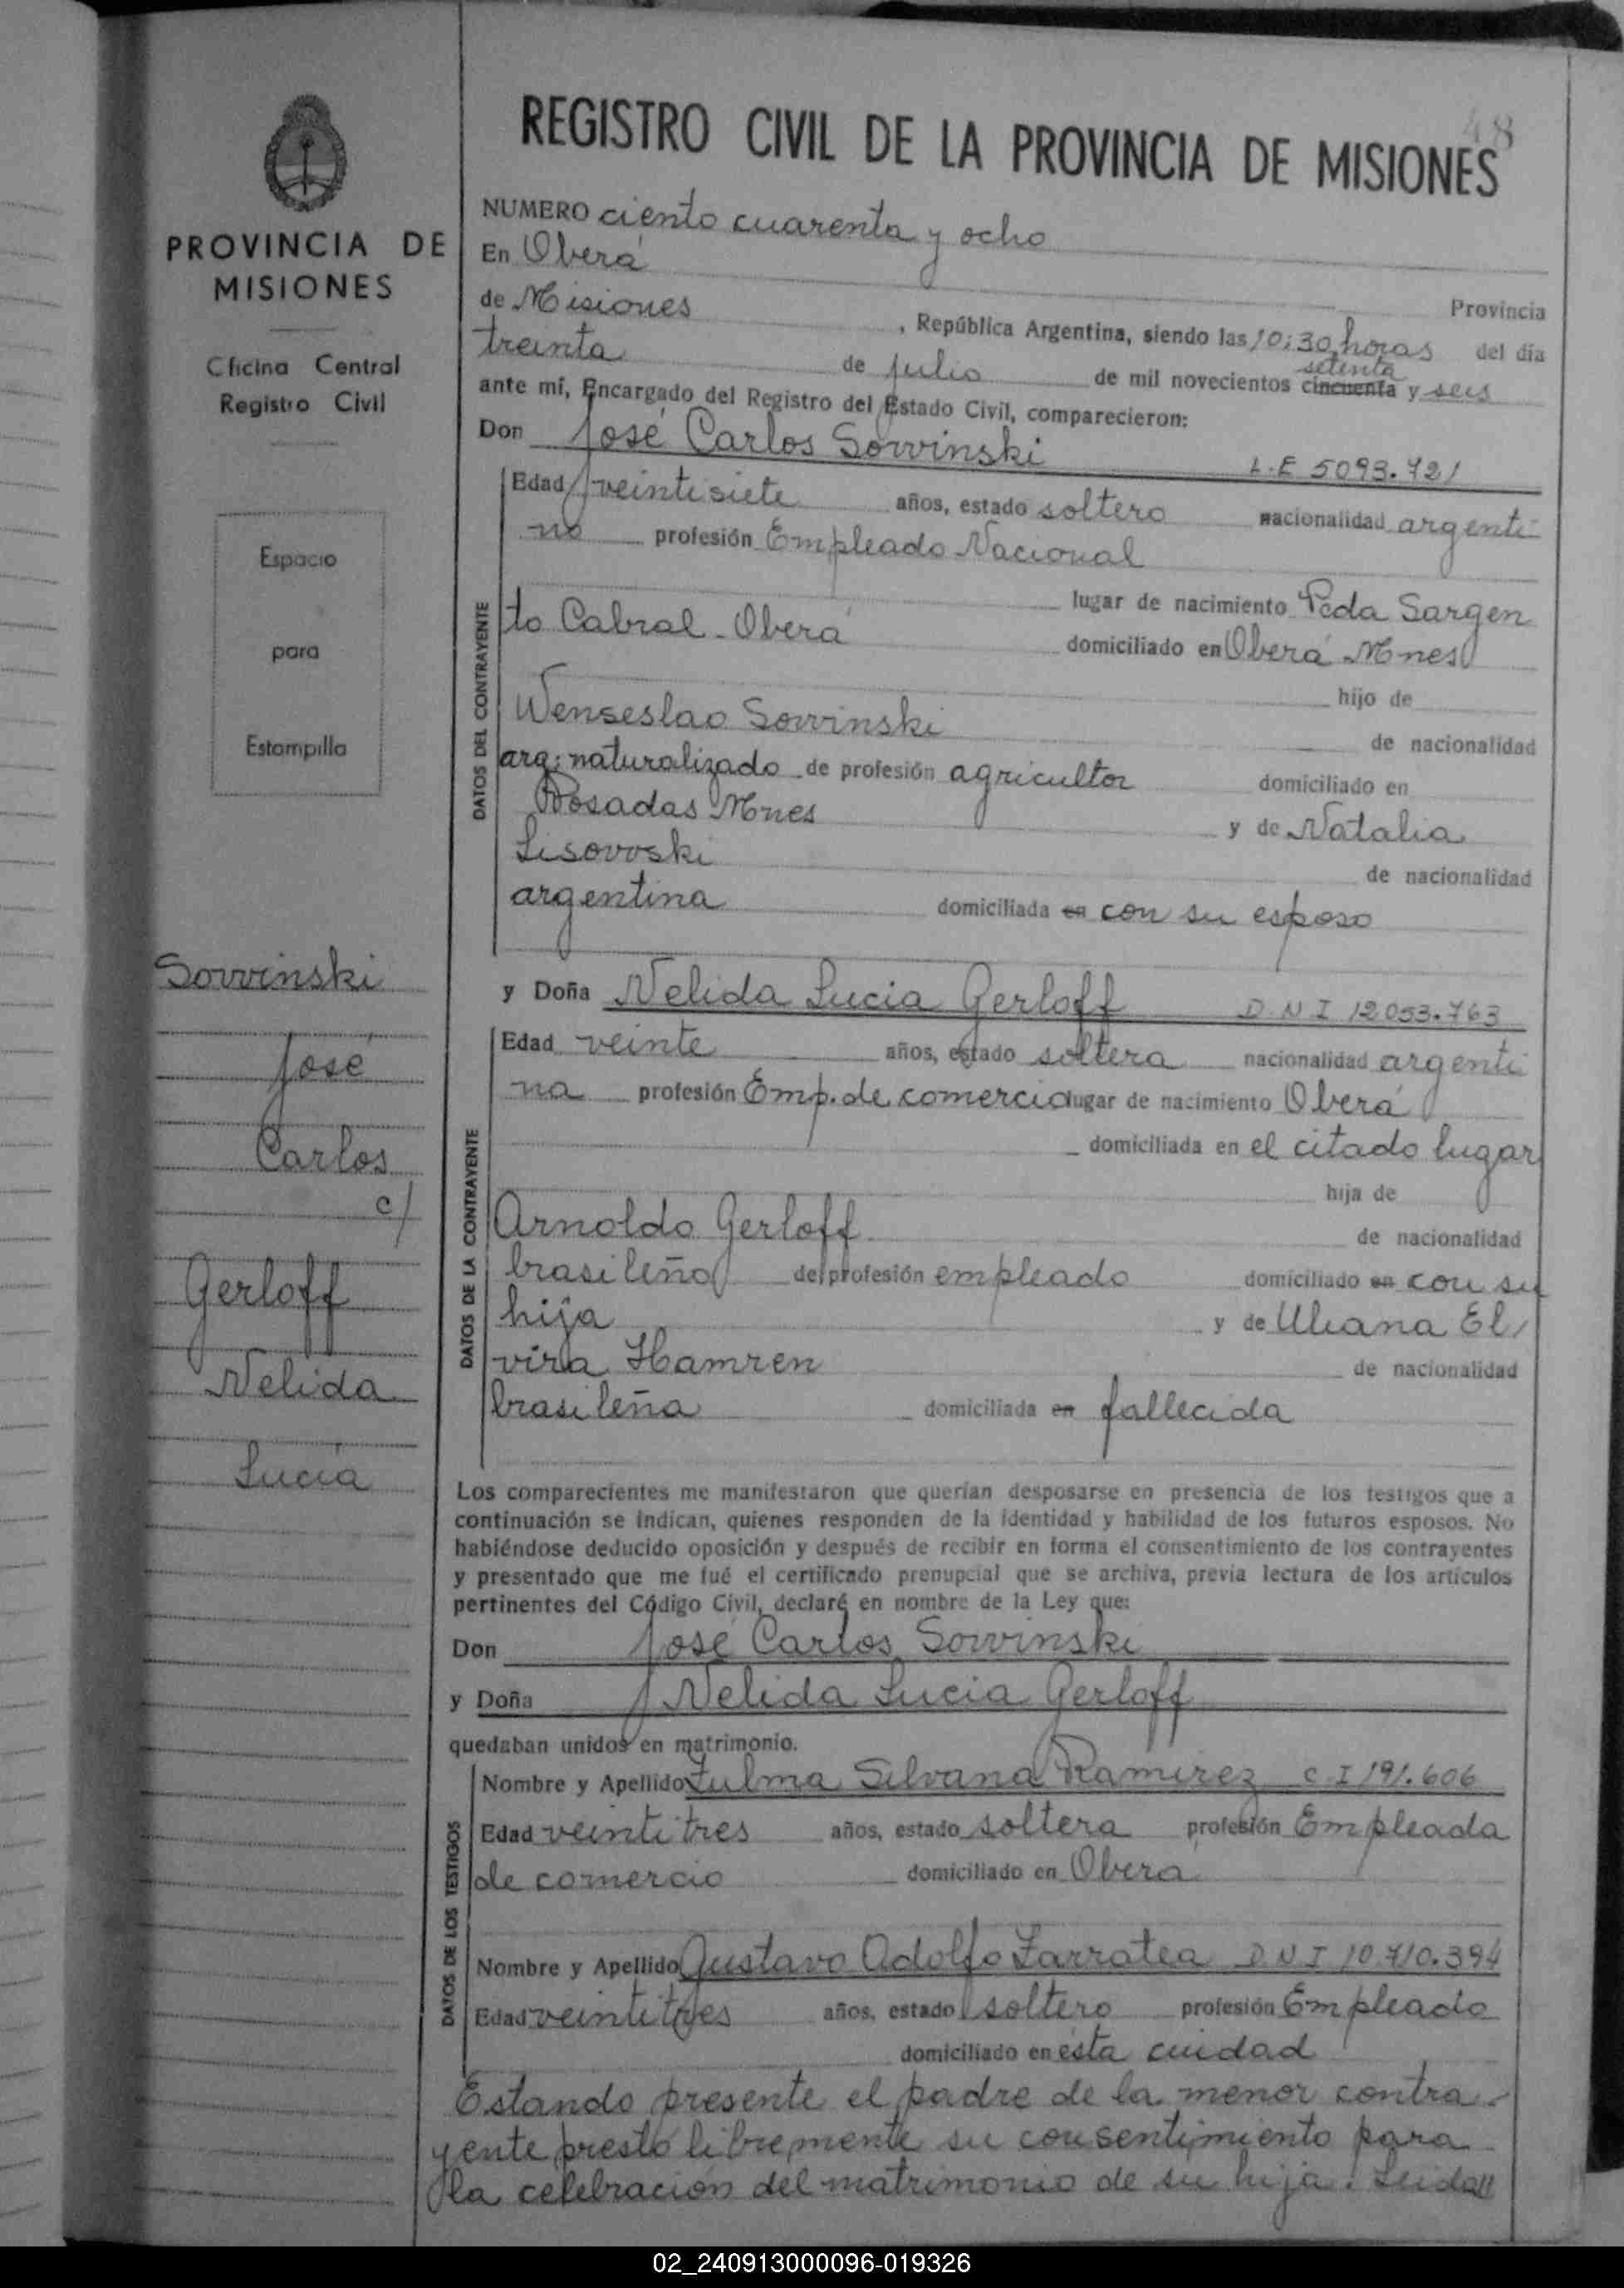 48
REGISTRO CIVIL DE LA PROVINCIA DE MISIONES
PROVINCIA DE
MISIONES
Oficina Central
Registro Civil
Espacio
para
Estampilla
Sowinski
José
Carlos
c/
Gerloff
Nelida
Lucía
NUMERO ciento cuarenta y ocho
En Oberá Provincia
de Misiones, República Argentina, siendo las 10:30 horas del día
treinta de julio de mil novecientos cincuenta setenta y seis
ante mí, Encargado del Registro del Estado Civil, comparecieron:
Don José Carlos Sowinski L.E 5093.721
DATOS DEL CONTRAYENTE
Edad veintisiete años, estado soltero nacionalidad argenti
no profesión Empleado Nacional
lugar de nacimiento Pcda Sargen
to Cabral - Oberá domiciliado en Oberá Mnes
hijo de
Wenseslao Sowinski de nacionalidad
arg: naturalizado de profesión agricultor domiciliado en
Posadas Mnes y de Natalia
Lisowski de nacionalidad
argentina domiciliada en con su esposo
y Doña Nelida Lucia Gerloff D.N.I 12053.763
DATOS DE LA CONTRAYENTE
Edad veinte años, estado soltera nacionalidad argenti
na profesión Emp. de comercio lugar de nacimiento Oberá
domiciliada en el citado lugar
hija de
Arnoldo Gerloff de nacionalidad
brasileño de profesión empleado domiciliado en con su
hija y de Uliana El
vira Hamren de nacionalidad
brasileña domiciliada en fallecida
Los comparecientes me manifestaron que querían desposarse en presencia de los testigos que a
continuación se indican, quienes responden de la identidad y habilidad de los futuros esposos. No
habiéndose deducido oposición y después de recibir en forma el consentimiento de los contrayentes
y presentado que me fué el certificado prenupcial que se archiva, previa lectura de los artículos
pertinentes del Código Civil, declaré en nombre de la Ley que:
Don José Carlos Sowinski
y Doña Nelida Lucia Gerloff
quedaban unidos en matrimonio.
DATOS DE LOS TESTIGOS
Nombre y Apellido Zulma Silvana Ramirez C.I 191.606
Edad veintitres años, estado soltera profesión Empleada
de comercio domiciliado en Oberá
Nombre y Apellido Gustavo Adolfo Zarratea D.N.I 10.710.394
Edad veintitres años, estado soltero profesión Empleado
domiciliado en ésta ciudad
Estando presente el padre de la menor contra
yente prestó libremente su consentimiento para
la celebración del matrimonio de su hija. Leida//
02_240913000096-019326